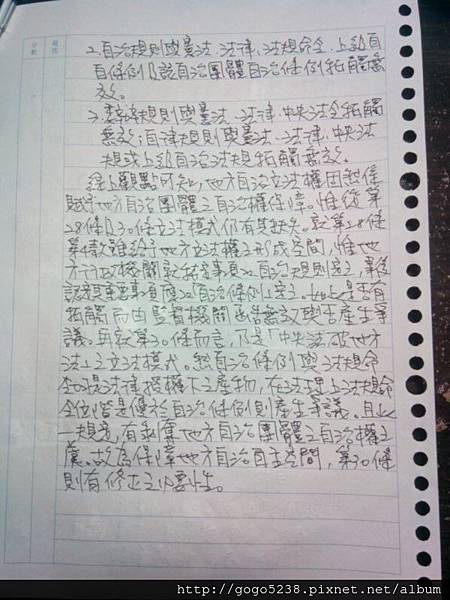 2.自治規則與憲法、法律、法規命令、上級自
自條例及該自治團體自治條例牴觸無
效。
3.委辦規則與憲法、法律、中央法令牴觸
無效；自律規則與憲法、法律、中央法
規或上級自治法規牴觸無效。
綜上觀點可知，地方自治立法權因制憲
賦予地方自治團體之自治權保障。惟從第
28條及30條立法模式仍有其缺失。就第28條
第4款雖給予地方立法權之形成空間，惟地
方行政機關就結事項以自治規則定之，事後
認屬重要事項應以自治條例上定之。如此是否有
牴觸而由監督機關函告無效與否產生爭
議。再就第30條而言，乃是「中央法破地方
法」之立法模式。然自治條例與法規命
令如是法律授權下之產物，在法理上法規命
令位階是優於自治條例則產生爭議。且此
一規定，有剝奪地方自治團體之自治權之
虞。故為保障地方自治自主空間，第30條
則有修正之必要性。
http://gogo5238.pixnet.net/album